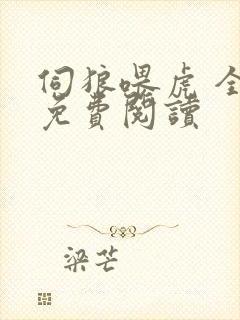 伺狼喂虎 全
免費閱讀
梁芒